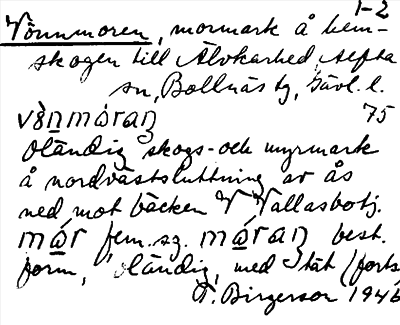 1-2
Vönnmoren, mormark å hem-
skogen till Älvkarhed, Alfta
sn, Bollnäs tg, Gävl. l.
vònmóraŋ 75
Oländig skogs- och myrmark
å nordvästsluttning av ås
ned mot bäcken V Vallasbotj.
mar fem. sg. máraŋ best.
form, oländig, med tät (forts
T. Birgerson 1946